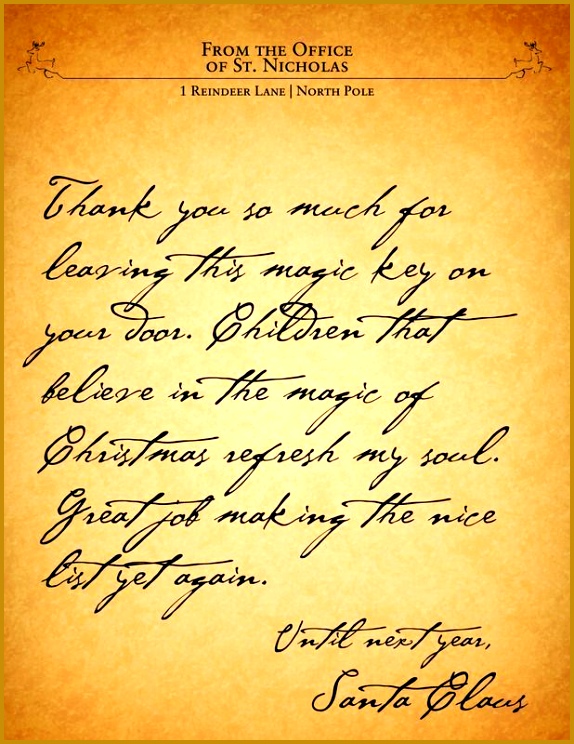 From the Office
of St. Nicholas
1 Reindeer Lane | North Pole
Thank you so much for
leaving this magic key on
your door. Children that
believe in the magic of
Christmas refresh my soul.
Great job making the nice
list yet again.
Until next year,
Santa Claus